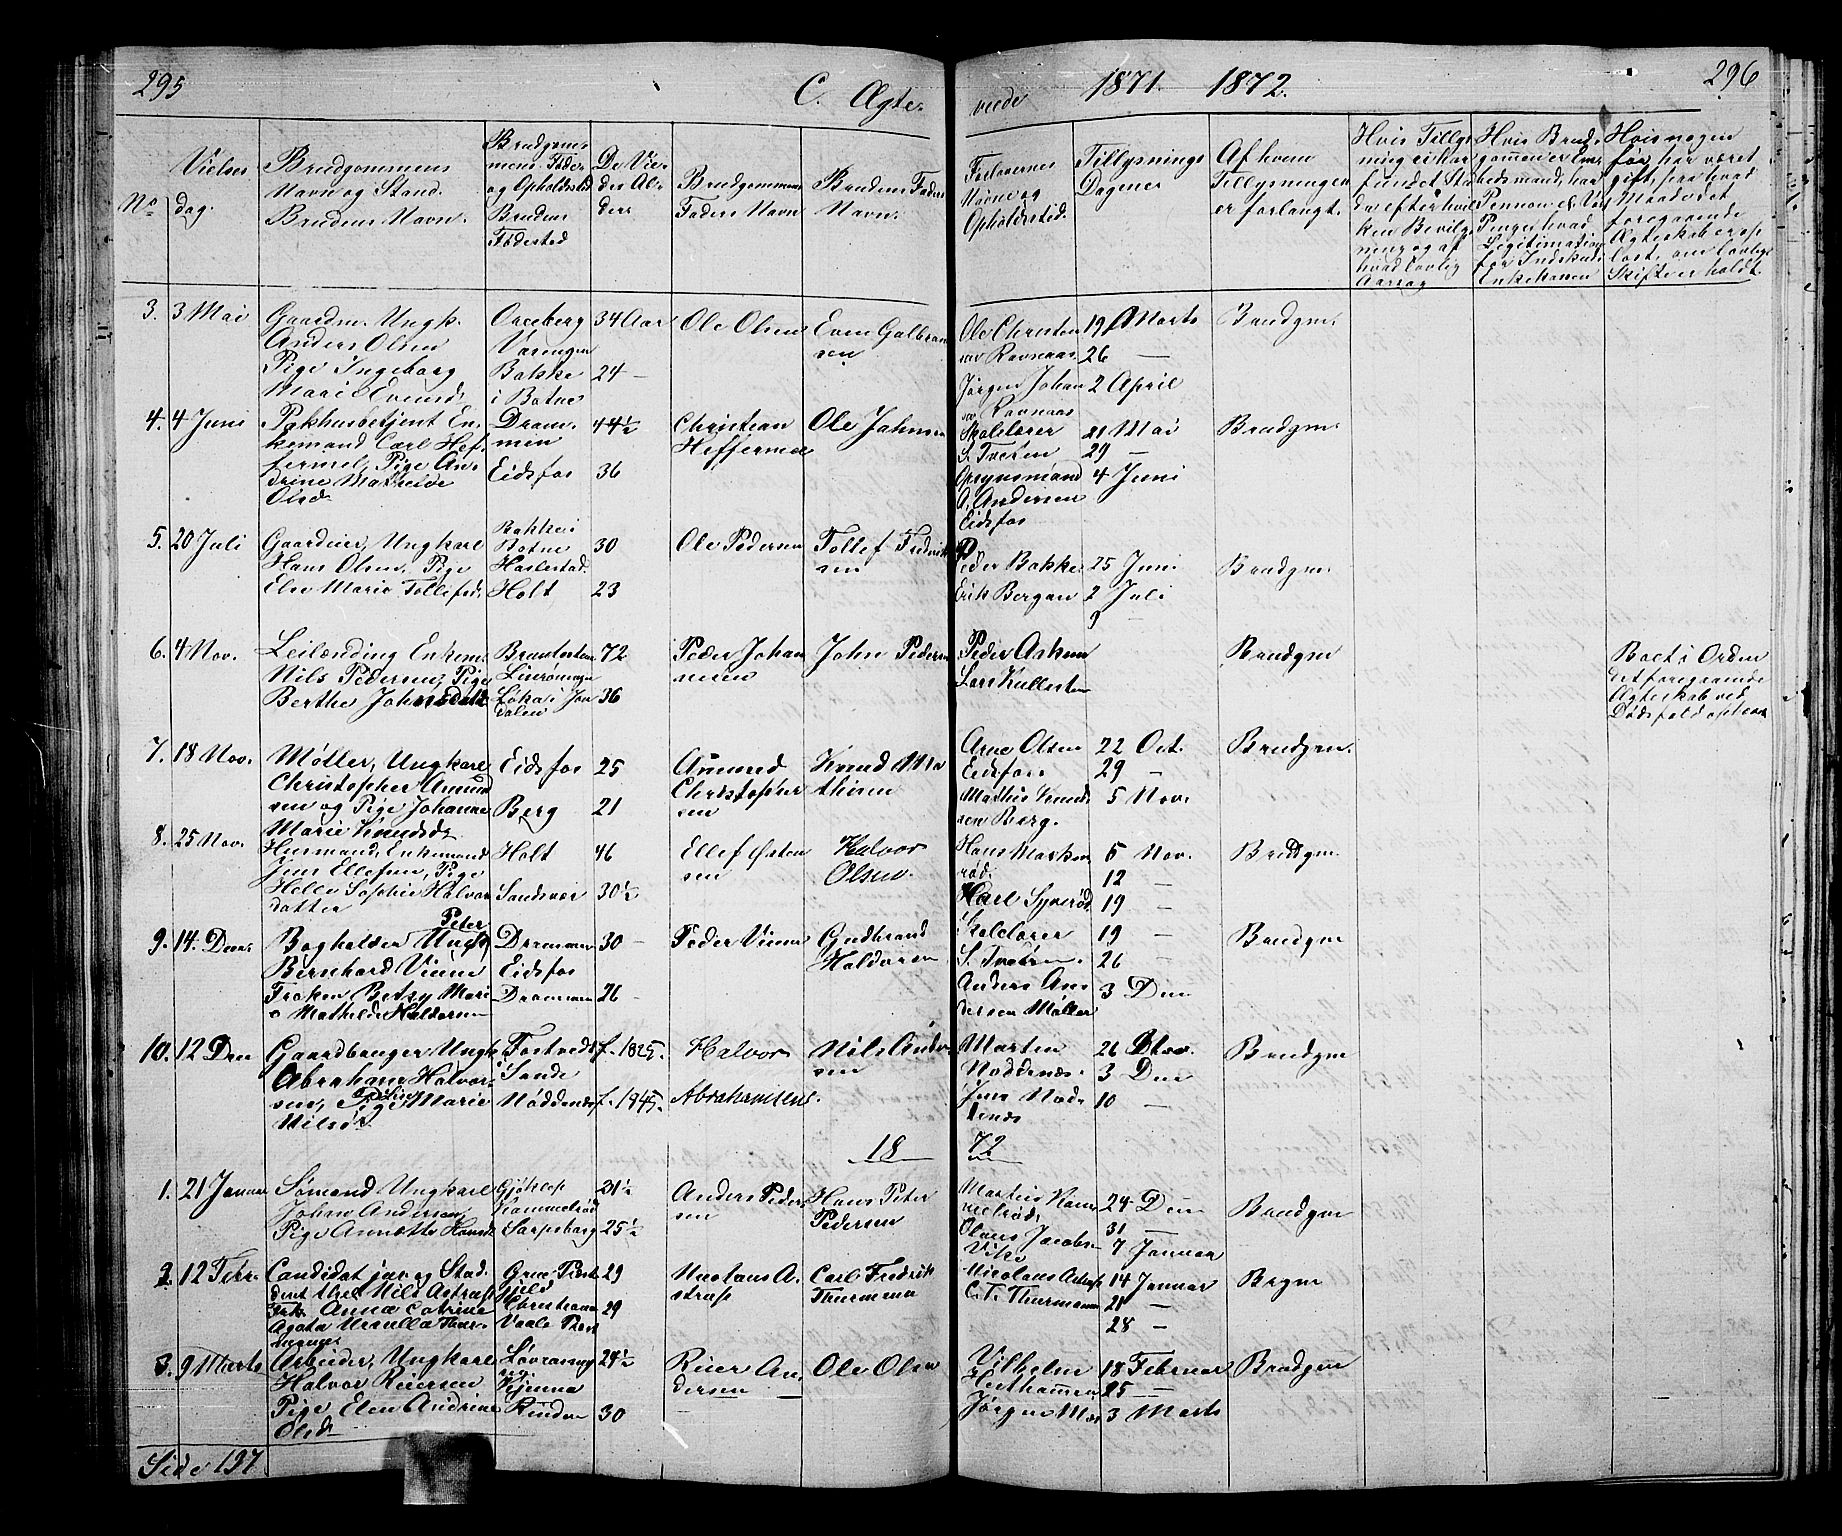 295
C. Ægte-
viede
1871. 1872.
296
No
Vielses
dag.
Brudgommens
Navn og Stand.
Brudens Navn.
Brudgom-
mens Føde-
og Opholdssted
Brudens
Fødested
De Vie-
des Al-
der
Brudgommens
Faders Navn
Brudens Faders
Navn.
Forlovernes
Navne og
Opholdssted.
Tillysnings
Dagene
Af hvem
Tillysningen
er forlangt.
Hvis Tillys
ning ei har
fundet Sted
da efter hvil
ken Bevilg
ning og af
hvad lovlig
Aarsag
Hvis Brud-
gommen er Em-
bedsmand, har
Pension &
Penge, hvad
Legitimation
for Indskud i
Enkekassen
Hvis nogen
før har været
gift, paa hvad
Maade det
foregaaende
Ægteskab er op
løst, om lovlige
Skifte er holdt.
3. 3 Mai
Gaardm. Ungk.
Anders Olsen
Pige Ingeborg
Marie Evensd.
Oreberg
Bakke
i Botne
34 Aar
24 —
Ole Olsen
Even Gulbran
sen
Ole Christen
sen Ravnaas
Jørgen Johan
sen Ravnaas
19 Marts
26 —
2 April
Brudgm.
4. 4 Juni
Pakhusbetjent En-
kemand Carl Hef-
fermel, Pige An-
drine Mathilde
Olsd.
Dram-
men
Eidsfos
44½
36
Christian
Heffermel
Ole Johnsen
Skolelærer
S. Tveten
Opsynsmand
A. Andersen
Eidsfos
21 Mai
29 —
4 Juni
Brudgm.
5. 20 Juli
Gaardeier, Ungkarl
Hans Olsen, Pige
Else Marie Tollefsd.
Bakke i
Botne
Haslestad
Holt
30
23
Ole Pedersen
Tollef Fredrik
sen
Peder Bakke
Erik Bergan
25 Juni
2 Juli
9 —
Brudgm.
6. 4 Nov.
Leilænding Enkem.
Nils Pedersen, Pige
Berthe Johnsdatter
Løka i Jon
dalen
72
36
Peder Johan
nesen
John Pedersen
Peder Asken
Lars Kullesten
Brudgm
Boet i Orden
det foregaaende
Ægteskab ved
Dødsfald opløst
7. 18 Nov.
Møller, Ungkarl
Christopher Amund
sen og Pige Johanne
Marie Knudsd.
Eidsfos
Berg
25
21
Amund
Christopher
sen
Knud Ma
thisen
Arne Olsen
Eidsfos.
Mathis Knud
sen Berg.
22 Oct.
29 —
5 Nov.
Brudgm.
8. 25 Nov.
Husmand, Enkemand
Jens Ellefsen, Pige
Helle Sophie Halvors
datter
Holt
Sandsvær
46
30½
Ellef Østen
sen
Halvor
Olsen.
Hans Marken
rød.
Karl Syverød
5 Nov.
12 —
19 —
Brudgm.
9. 14. Decr.
Peter
Bogholder Ungk.
Bernhard Vinne
Frøken Betsy Mari
e Mathilde Haldorsen
Drammen
Eidsfos
Drammen
30 —
26 —
Peder Vinne
Gudbrand
Haldorsen
Skolelærer
S. Tveten.
Anders An-
dersen Møller
19 —
26 —
3 Dec
Brudgm
10. 12 Dec
Gaardbruger Ungk.
Abraham Halvor-
sen, Pige Marie
Nilsd.
Tostvedt
i Sande
Nøddenæs
f. 1825.
f. 1845.
Halvor
Abrahamsen.
Nils Ander
sen
Morten
Noddenæs.
Jens Nod-
denæs
26 Nov.
3 Dec
10 —
Brudgm
18 72
1. 21 Januar
Sømand Ungkarl
Johan Andersen
Pige Annette Hansd.
Kammelrød
Sarpsborg
21½
25½
Anders Peder
sen
Hans Peter
Pedersen
Mathis Kam
melrød,
Olaus Jacobsen
Vike
24 Dec
31 —
7 Januar
Brudgm
2. 12 Febr.
Candidat jur. og Stud.
Nils Astrup
Frk. Anna Catrine
Agata Ursulla Thur-
mann
Grue Præst
gjeld
Christiania
Vaale Præst
29
29
Nicolaus A-
strup
Carl Fredrik
Thurmann
Nicolaus Astrup
C. F. Thurmann
14 Januar
21 —
28 —
Brgm
3. 9 Marts
Arbeider, Ungkarl
Halvor Reiersen
Pige Elen Andrine
Olsd.
Hjenna
Rinden
24½
30
Reier An-
dersen
Ole Olsen
Vilhelm
Jørgen
18 Februar
25 —
3 Marts
Brudgm
Side 197